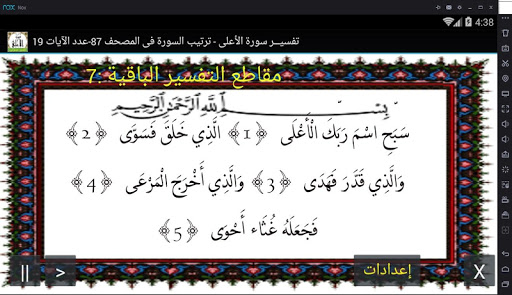 nox Nox
4:38
تفسيـــر سورة الأعلى - ترتيب السورة فى المصحف 87-عدد الآيات 19
مقاطع التفسير الباقية :7
بِسْمِ اللَّهِ الرَّحْمَنِ الرَّحِيمِ
سَبِّحِ اسْمَ رَبِّكَ الْأَعْلَى ﴿1﴾ الَّذِي خَلَقَ فَسَوَّى ﴿2﴾
وَالَّذِي قَدَّرَ فَهَدَى ﴿3﴾ وَالَّذِي أَخْرَجَ الْمَرْعَى ﴿4﴾
فَجَعَلَهُ غُثَاء أَحْوَى ﴿5﴾
|| > إعدادات X